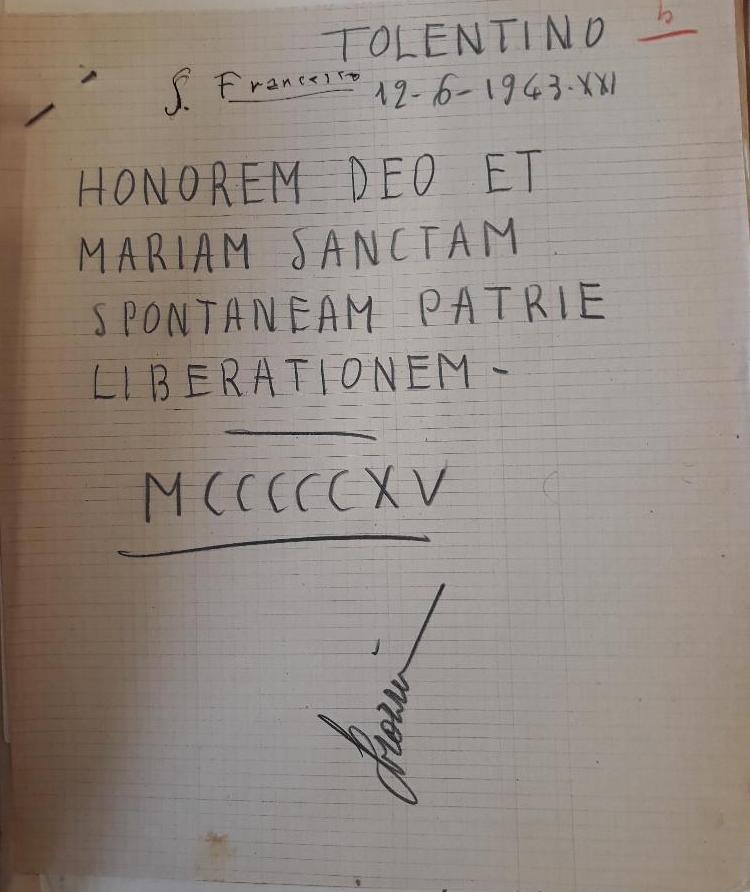 TOLENTINO
S. Francesco 12-6-1943.XXI
HONOREM DEO ET
MARIAM SANCTAM
SPONTANEAM PATRIE
LIBERATIONEM -
MCCCCCXV